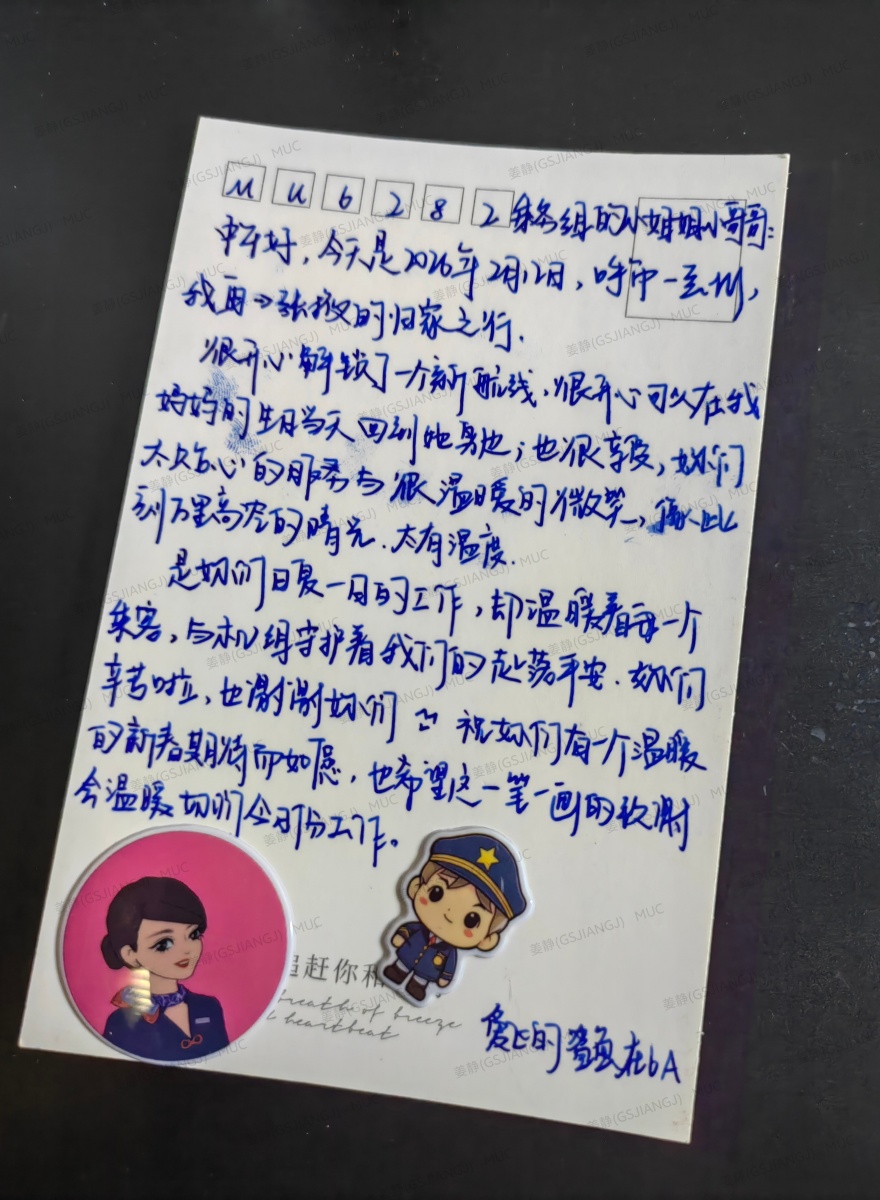 MU6282乘务组的小姐姐小哥哥:
中午好,今天是2026年2月12日,呼市一兰州,
我再→张掖的归家之行.
很开心解锁了一个新航线,很开心可以在我
妈妈的生日当天回到她身边;也很享受,你们
太贴心的服务与很温暖的微笑,
到万里高空的晴光.太有温度.
是你们日复一日的工作,却温暖着每一个
乘客,与机组守护着我们的起落平安.你们
辛苦啦,也谢谢你们 祝你们有一个温暖
的新春期待而如愿,也希望这一笔一画的致谢
会温暖 你们今日份工作。
追赶你和
breath of breeze
heartbeat
爱飞的 在6A
姜静(GSJIANGJ) MUC